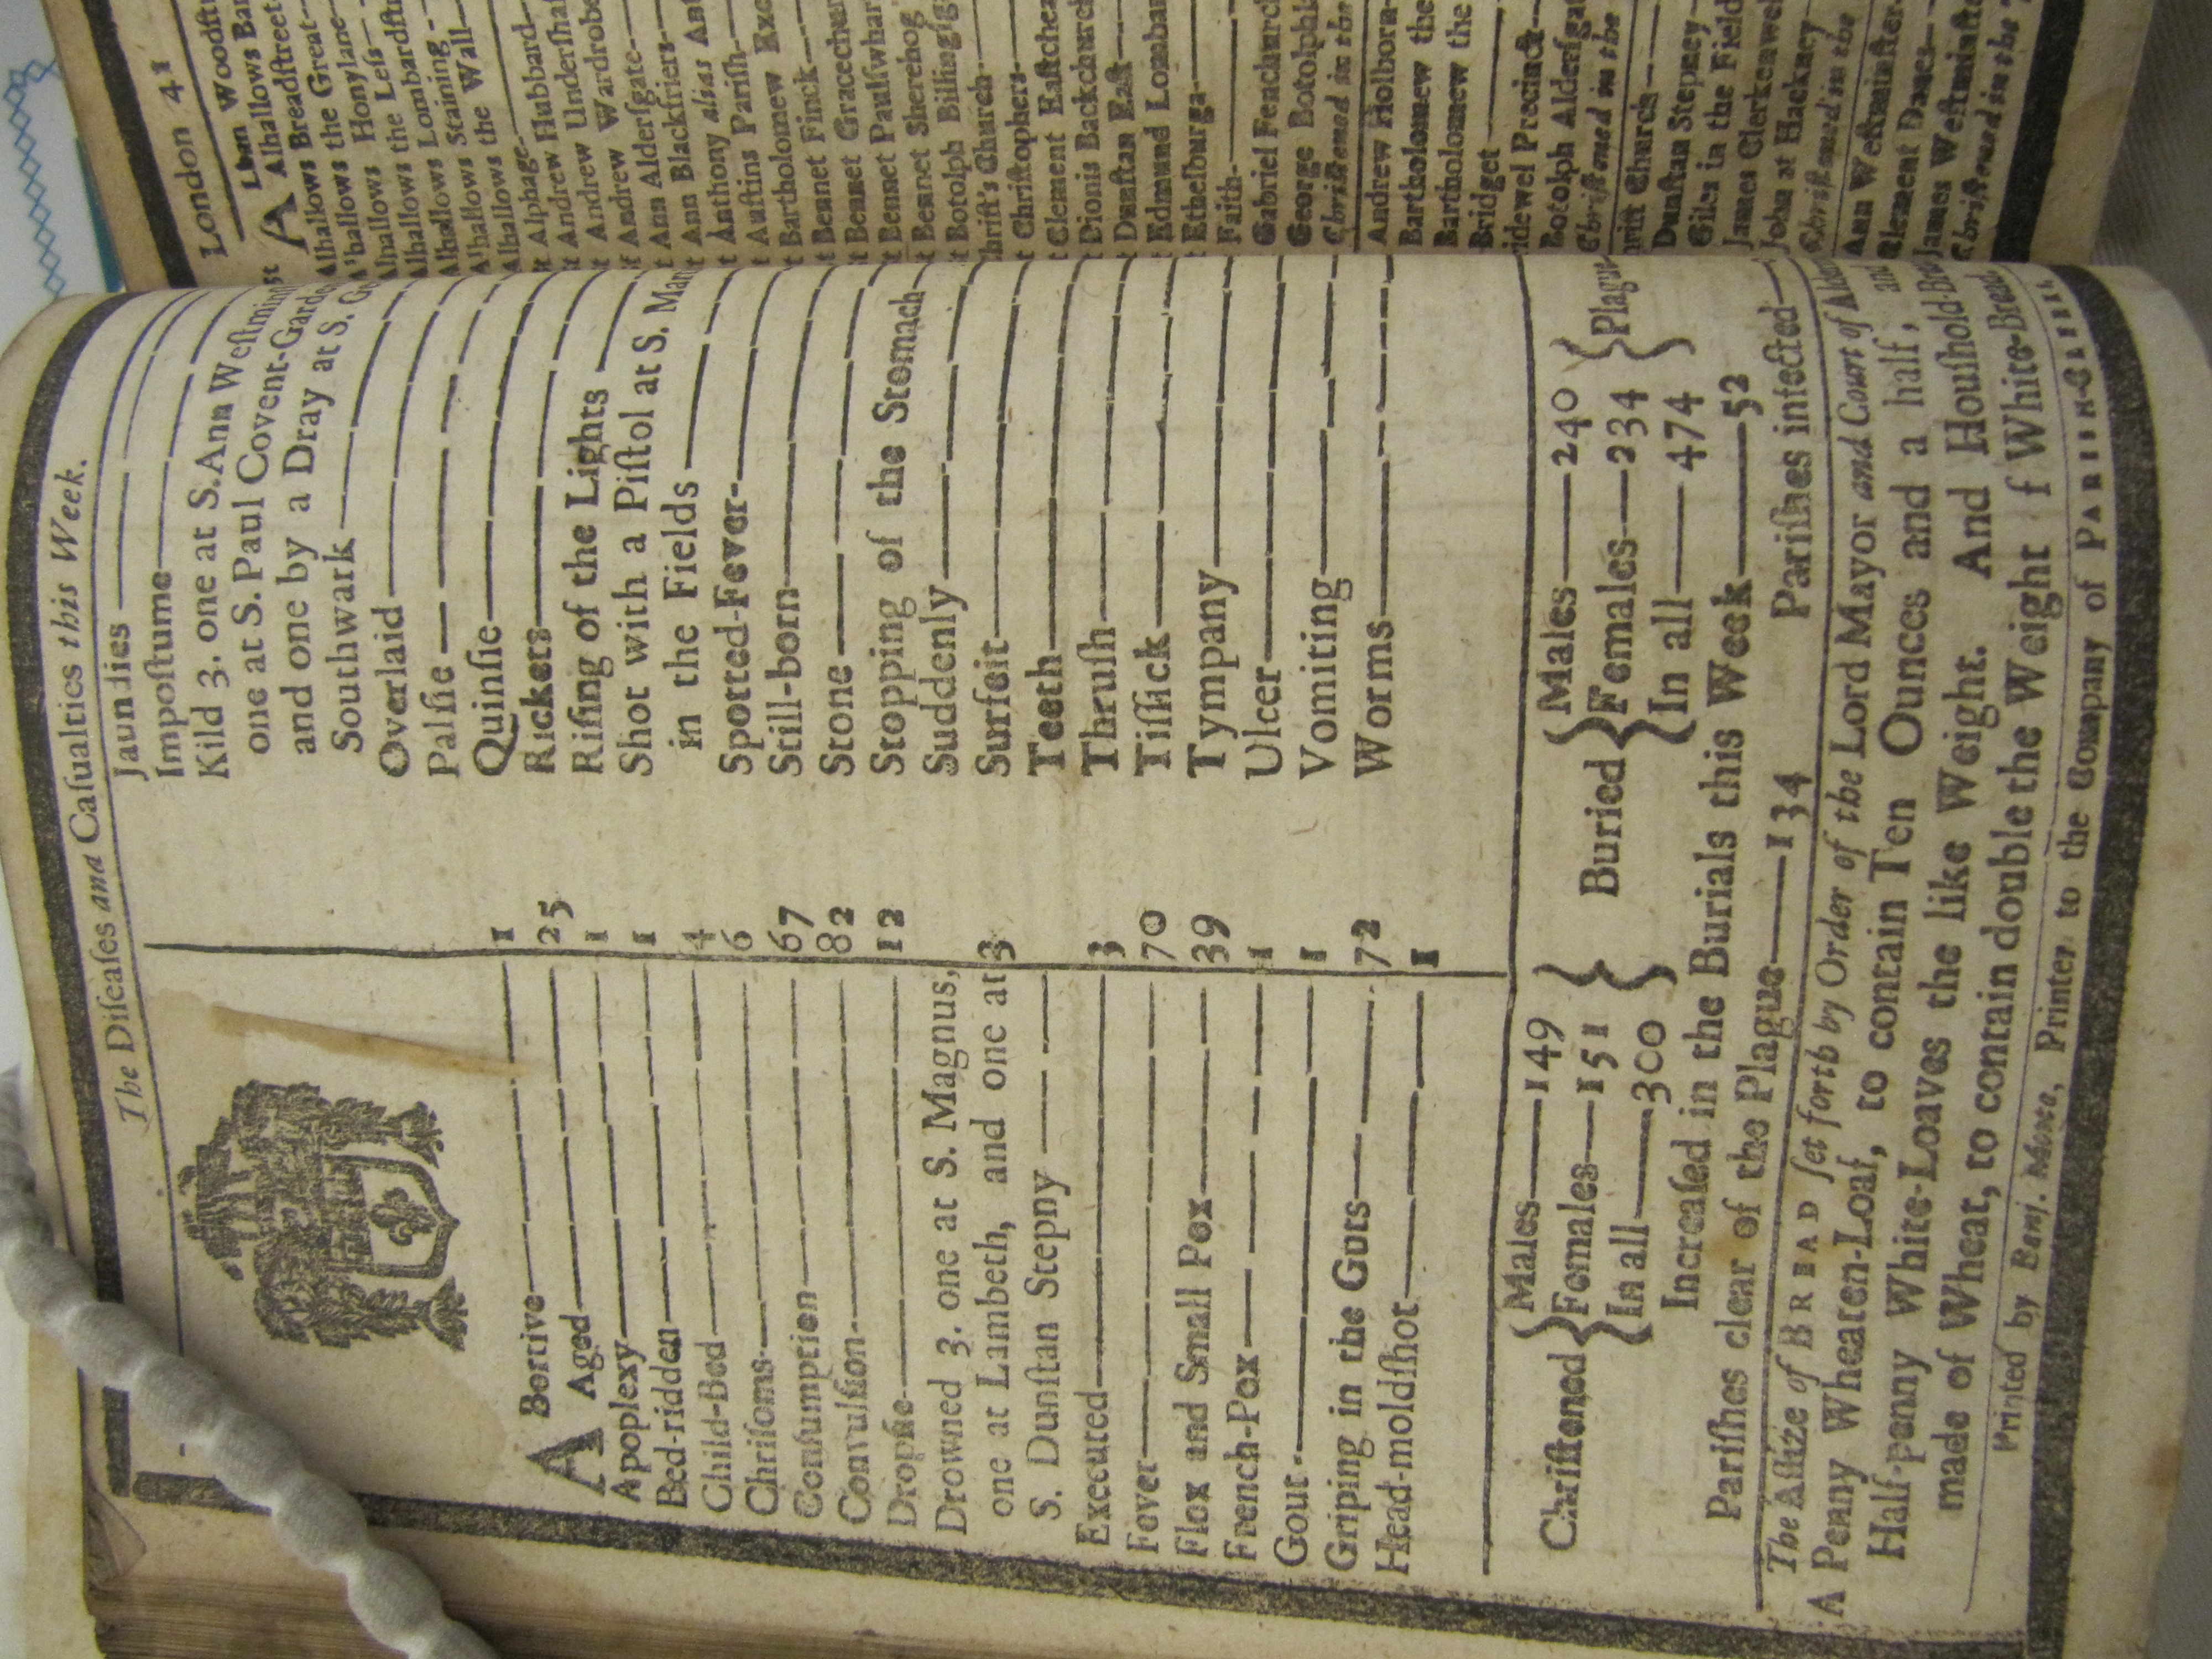 The Diſeaſes and Caſualties this Week.
A Bortive 1
Aged 25
Apoplexy 1
Bed-ridden 1
Child-Bed 4
Chriſoms 6
Conſumption 67
Convulſion 82
Dropſie 12
Drowned 3. one at S. Magnus,
one at Lambeth, and one at 3
S. Dunſtan Stepny
Executed 3
Fever 70
Flox and Small Pox 39
French-Pox 1
Gout 1
Griping in the Guts 72
Head-moldſhot 1
Jaundies
Impoſtume
Kild 3. one at S. Ann
one at S. Paul Covent-
and one by a Dray at S.
Southwark
Overlaid
Palſie
Quinſie
Rickets
Riſing of the Lights
Shot with a Piſtol at S.
in the Fields
Spotted-Fever
Still-born
Stone
Stopping of the Stomach
Suddenly
Surfeit
Teeth
Thruſh
Tiſſick
Tympany
Ulcer
Vomiting
Worms
Chriſtened { Males 149 Females 151 In all 300 } Buried { Males 240 Females 234 In all 474 } Plague
Increaſed in the Burials this Week 52
Pariſhes clear of the Plague 134 Pariſhes infected
The Aſſize of BREAD ſet forth by Order of the Lord Mayor and Court of
A Penny Wheaten-Loaf, to contain Ten Ounces and a half, and
Half-penny White-Loaves the like Weight. And Houſhold-
made of Wheat, to contain double the Weight f White-Bread.
Printed by Benj. Mote, Printer to the Company of PARISH-
London 41
A
Alhallows Breadſtreet
Alhallows the Great
Alhallows Honylane
Alhallows the Leſs
Alhallows Lombardſt
Alhallows Staining
Alhallows the Wall
Alphage
Andrew Hubbard
Andrew Underſhaf
Andrew Wardrobe
Ann Alderſgate
Ann Blackfriers
Anthony alias
Auſtins Pariſh
Bartholomew
Bennet Finck
Bennet Gracechur
Bennet Paulſwhar
Bennet Sherehog
Botolph Billingſg
Church
Chriſtophers
Clement Eaſtchea
Dionis Backchurch
Dunſtan Eaſt
Edmund Lombar
Ethelburga
Faith
Gabriel Fenchurch
George Botolph
Chriſtned in the
Andrew Holborn
Bartholomew the
Bartholomew the
Bridget
idewel Precinct
Botolph Alderſgat
Chriſtned in the
Church
Dunſtan Stepney
Giles in the Field
James Clerkenwel
John at Hackney
Chriſtned in the
Ann Weſtminſter
Clement Danes
James Weſtminſte
Chriſtned in the